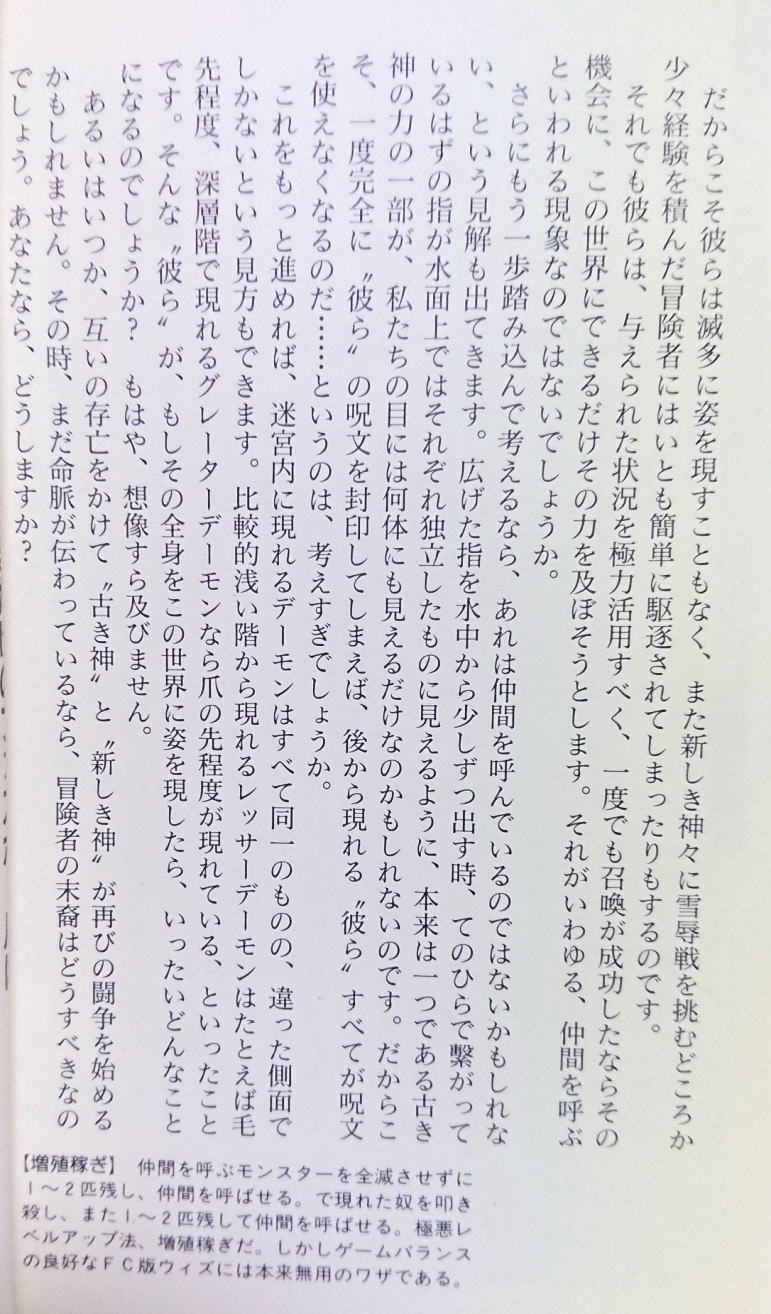 だからこそ彼らは滅多に姿を現すこともなく、また新しき神々に雪辱戦を挑むどころか
少々経験を積んだ冒険者にはいとも簡単に駆逐されてしまったりもするのです。
それでも彼らは、与えられた状況を極力活用すべく、一度でも召喚が成功したならその
機会に、この世界にできるだけその力を及ぼそうとします。それがいわゆる、仲間を呼ぶ
といわれる現象なのではないでしょうか。
さらにもう一歩踏み込んで考えるなら、あれは仲間を呼んでいるのではないかもしれな
い、という見解も出てきます。広げた指を水中から少しずつ出す時、てのひらで繋がって
いるはずの指が水面上ではそれぞれ独立したものに見えるように、本来は一つである古き
神の力の一部が、私たちの目には何体にも見えるだけなのかもしれないのです。だからこ
そ、一度完全に〝彼ら〟の呪文を封印してしまえば、後から現れる〝彼ら〟すべてが呪文
を使えなくなるのだ……というのは、考えすぎでしょうか。
これをもっと進めれば、迷宮内に現れるデーモンはすべて同一のものの、違った側面で
しかないという見方もできます。比較的浅い階から現れるレッサーデーモンはたとえば毛
先程度、深層階で現れるグレーターデーモンなら爪の先程度が現れている、といったこと
です。そんな〝彼ら〟が、もしその全身をこの世界に姿を現したら、いったいどんなこと
になるのでしょうか? もはや、想像すら及びません。
あるいはいつか、互いの存亡をかけて〝古き神〟と〝新しき神〟が再びの闘争を始める
かもしれません。その時、まだ命脈が伝わっているなら、冒険者の末裔はどうすべきなの
でしょう。あなたなら、どうしますか?
【増殖稼ぎ】 仲間を呼ぶモンスターを全滅させずに
1〜2匹残し、仲間を呼ばせる。で現れた奴を叩き
殺し、また1〜2匹残して仲間を呼ばせる。極悪レ
ベルアップ法、増殖稼ぎだ。しかしゲームバランス
の良好なFC版ウィズには本来無用のワザである。